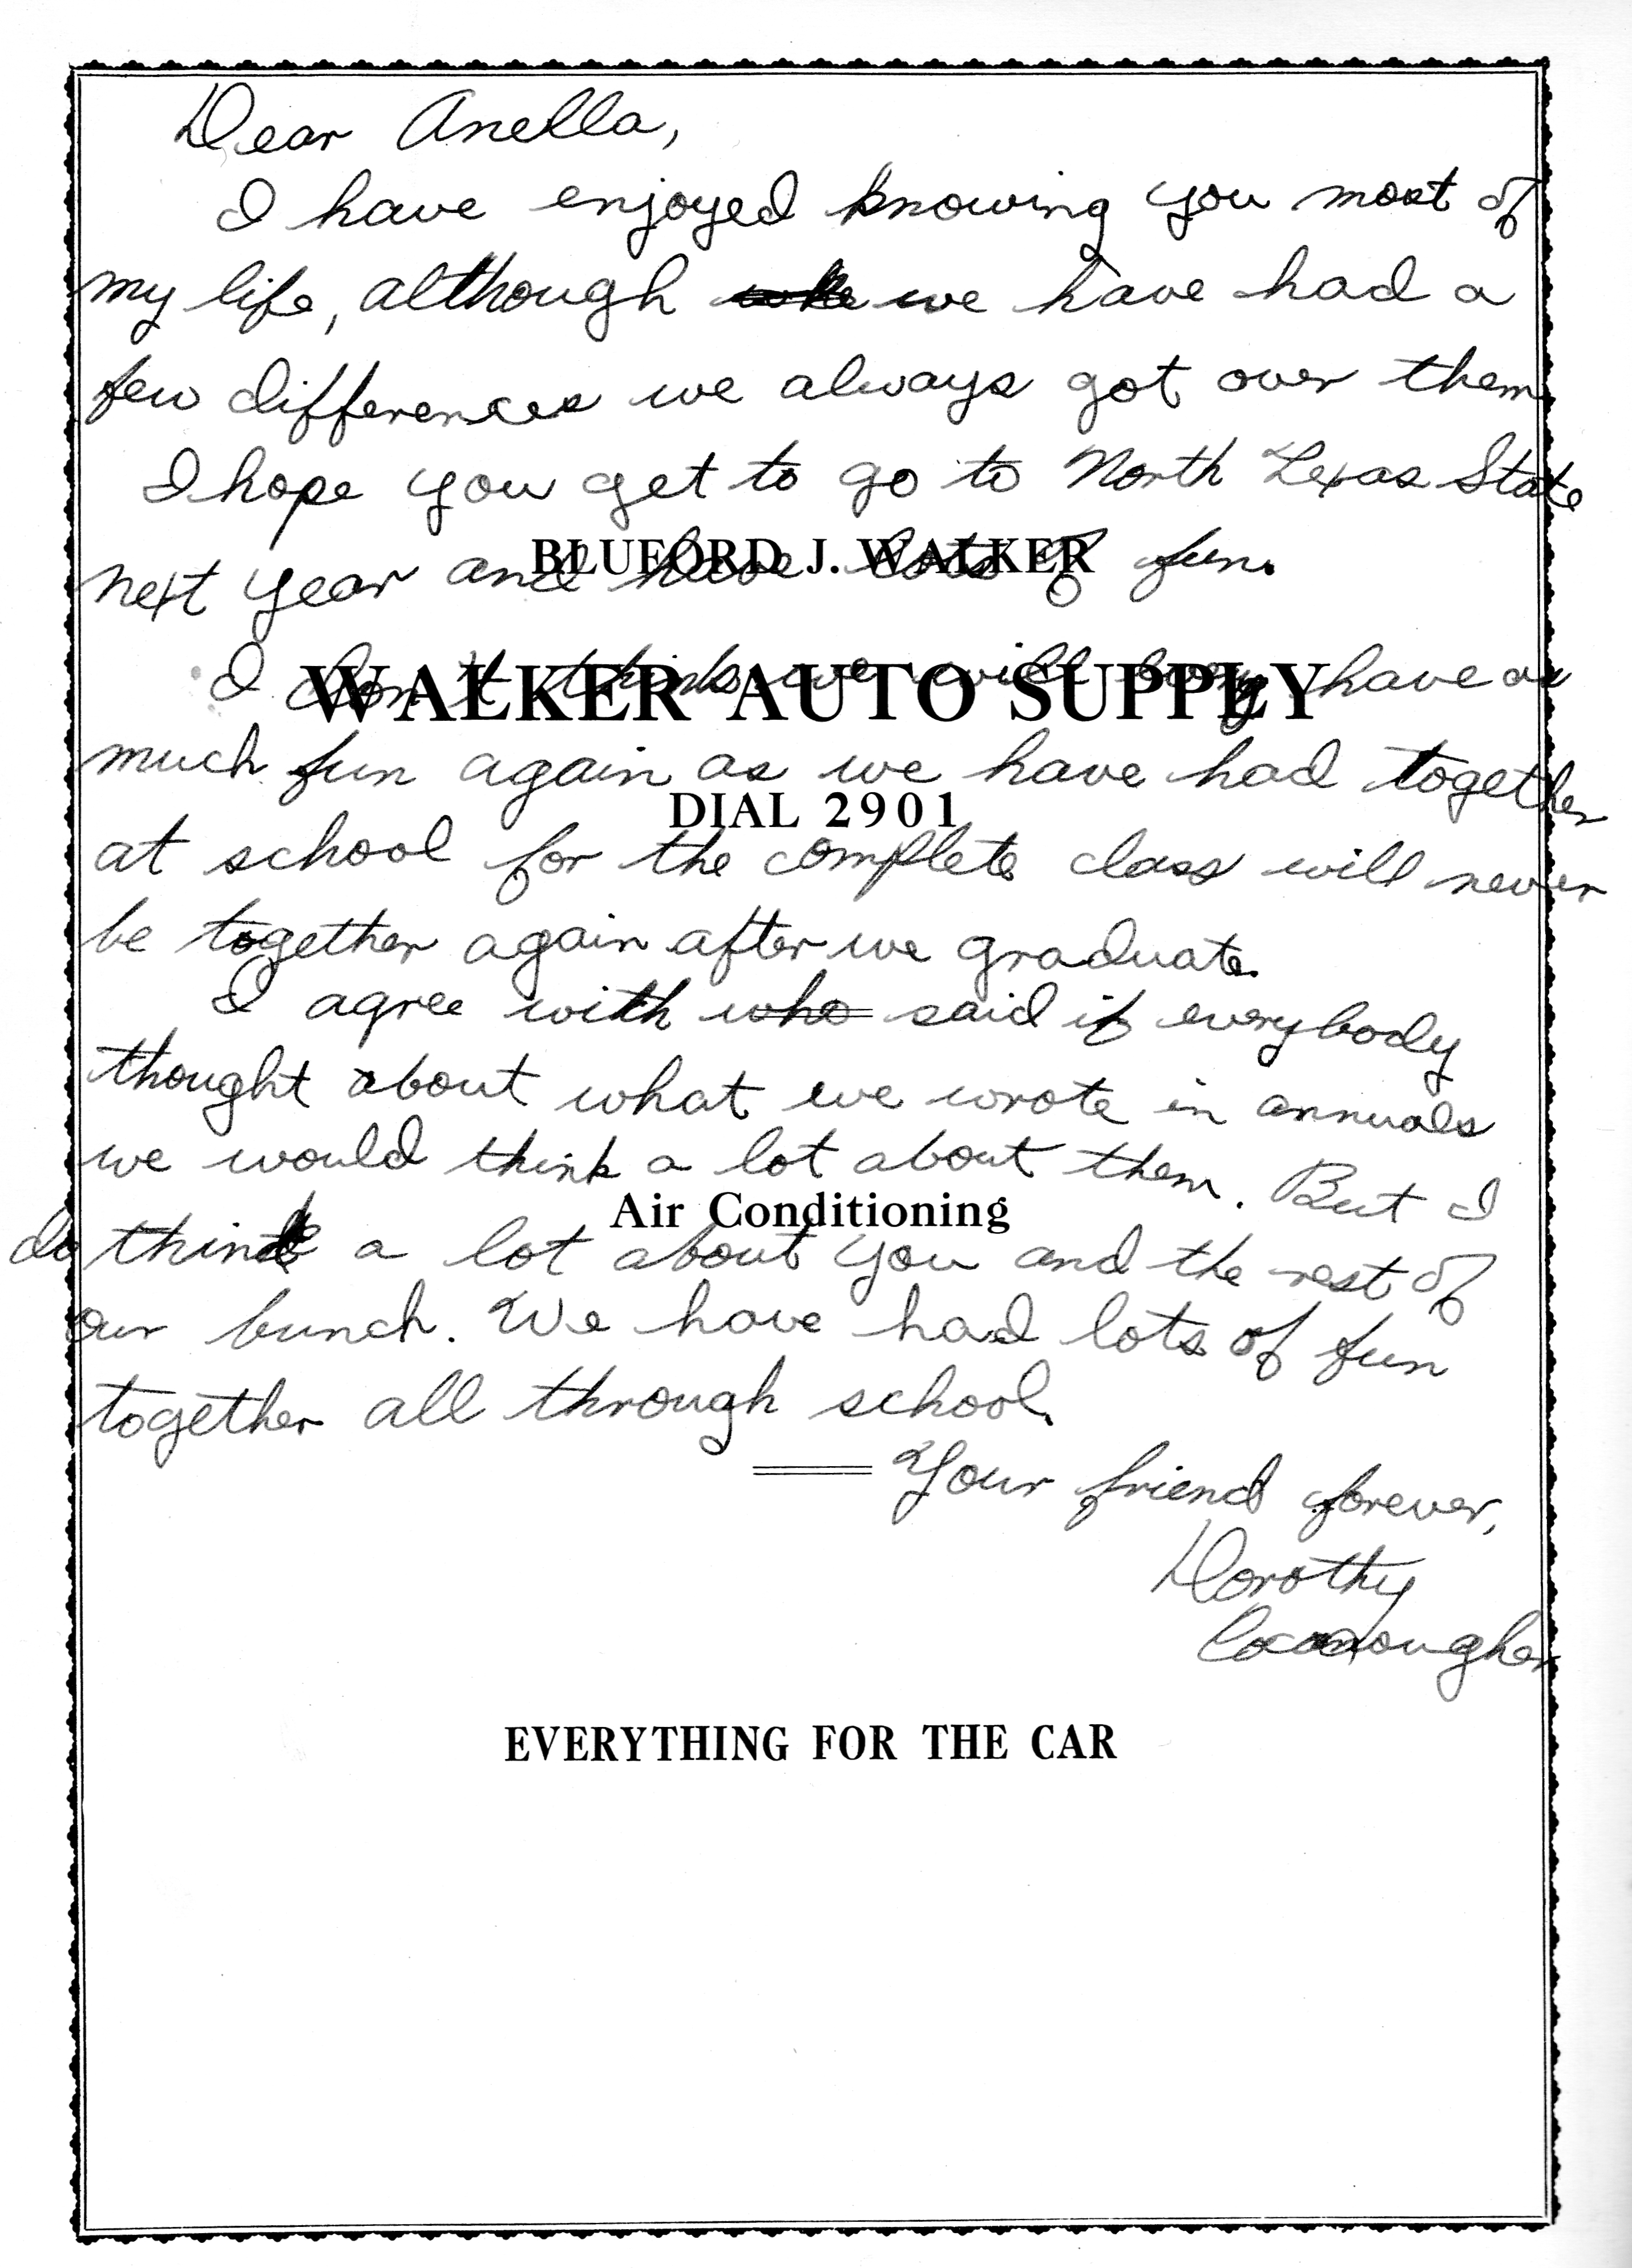 Dear Anella,
I have enjoyed knowing you most of
my life, although we have had a
few differences we always got over them
I hope you get to go to North Texas State
next year and have lots of fun.
BLUFORD J. WALKER
I don't think we will have as
WALKER AUTO SUPPLY
much fun again as we have had together
DIAL 2901
at school for the complete class will never
be together again after we graduate.
I agree with who said if everybody
thought about what we wrote in annuals
we would think a lot about them. But I
Air Conditioning
do think a lot about you and the rest of
our bunch. We have had lots of fun
together all through school.
Your friend forever,
Dorothy
EVERYTHING FOR THE CAR